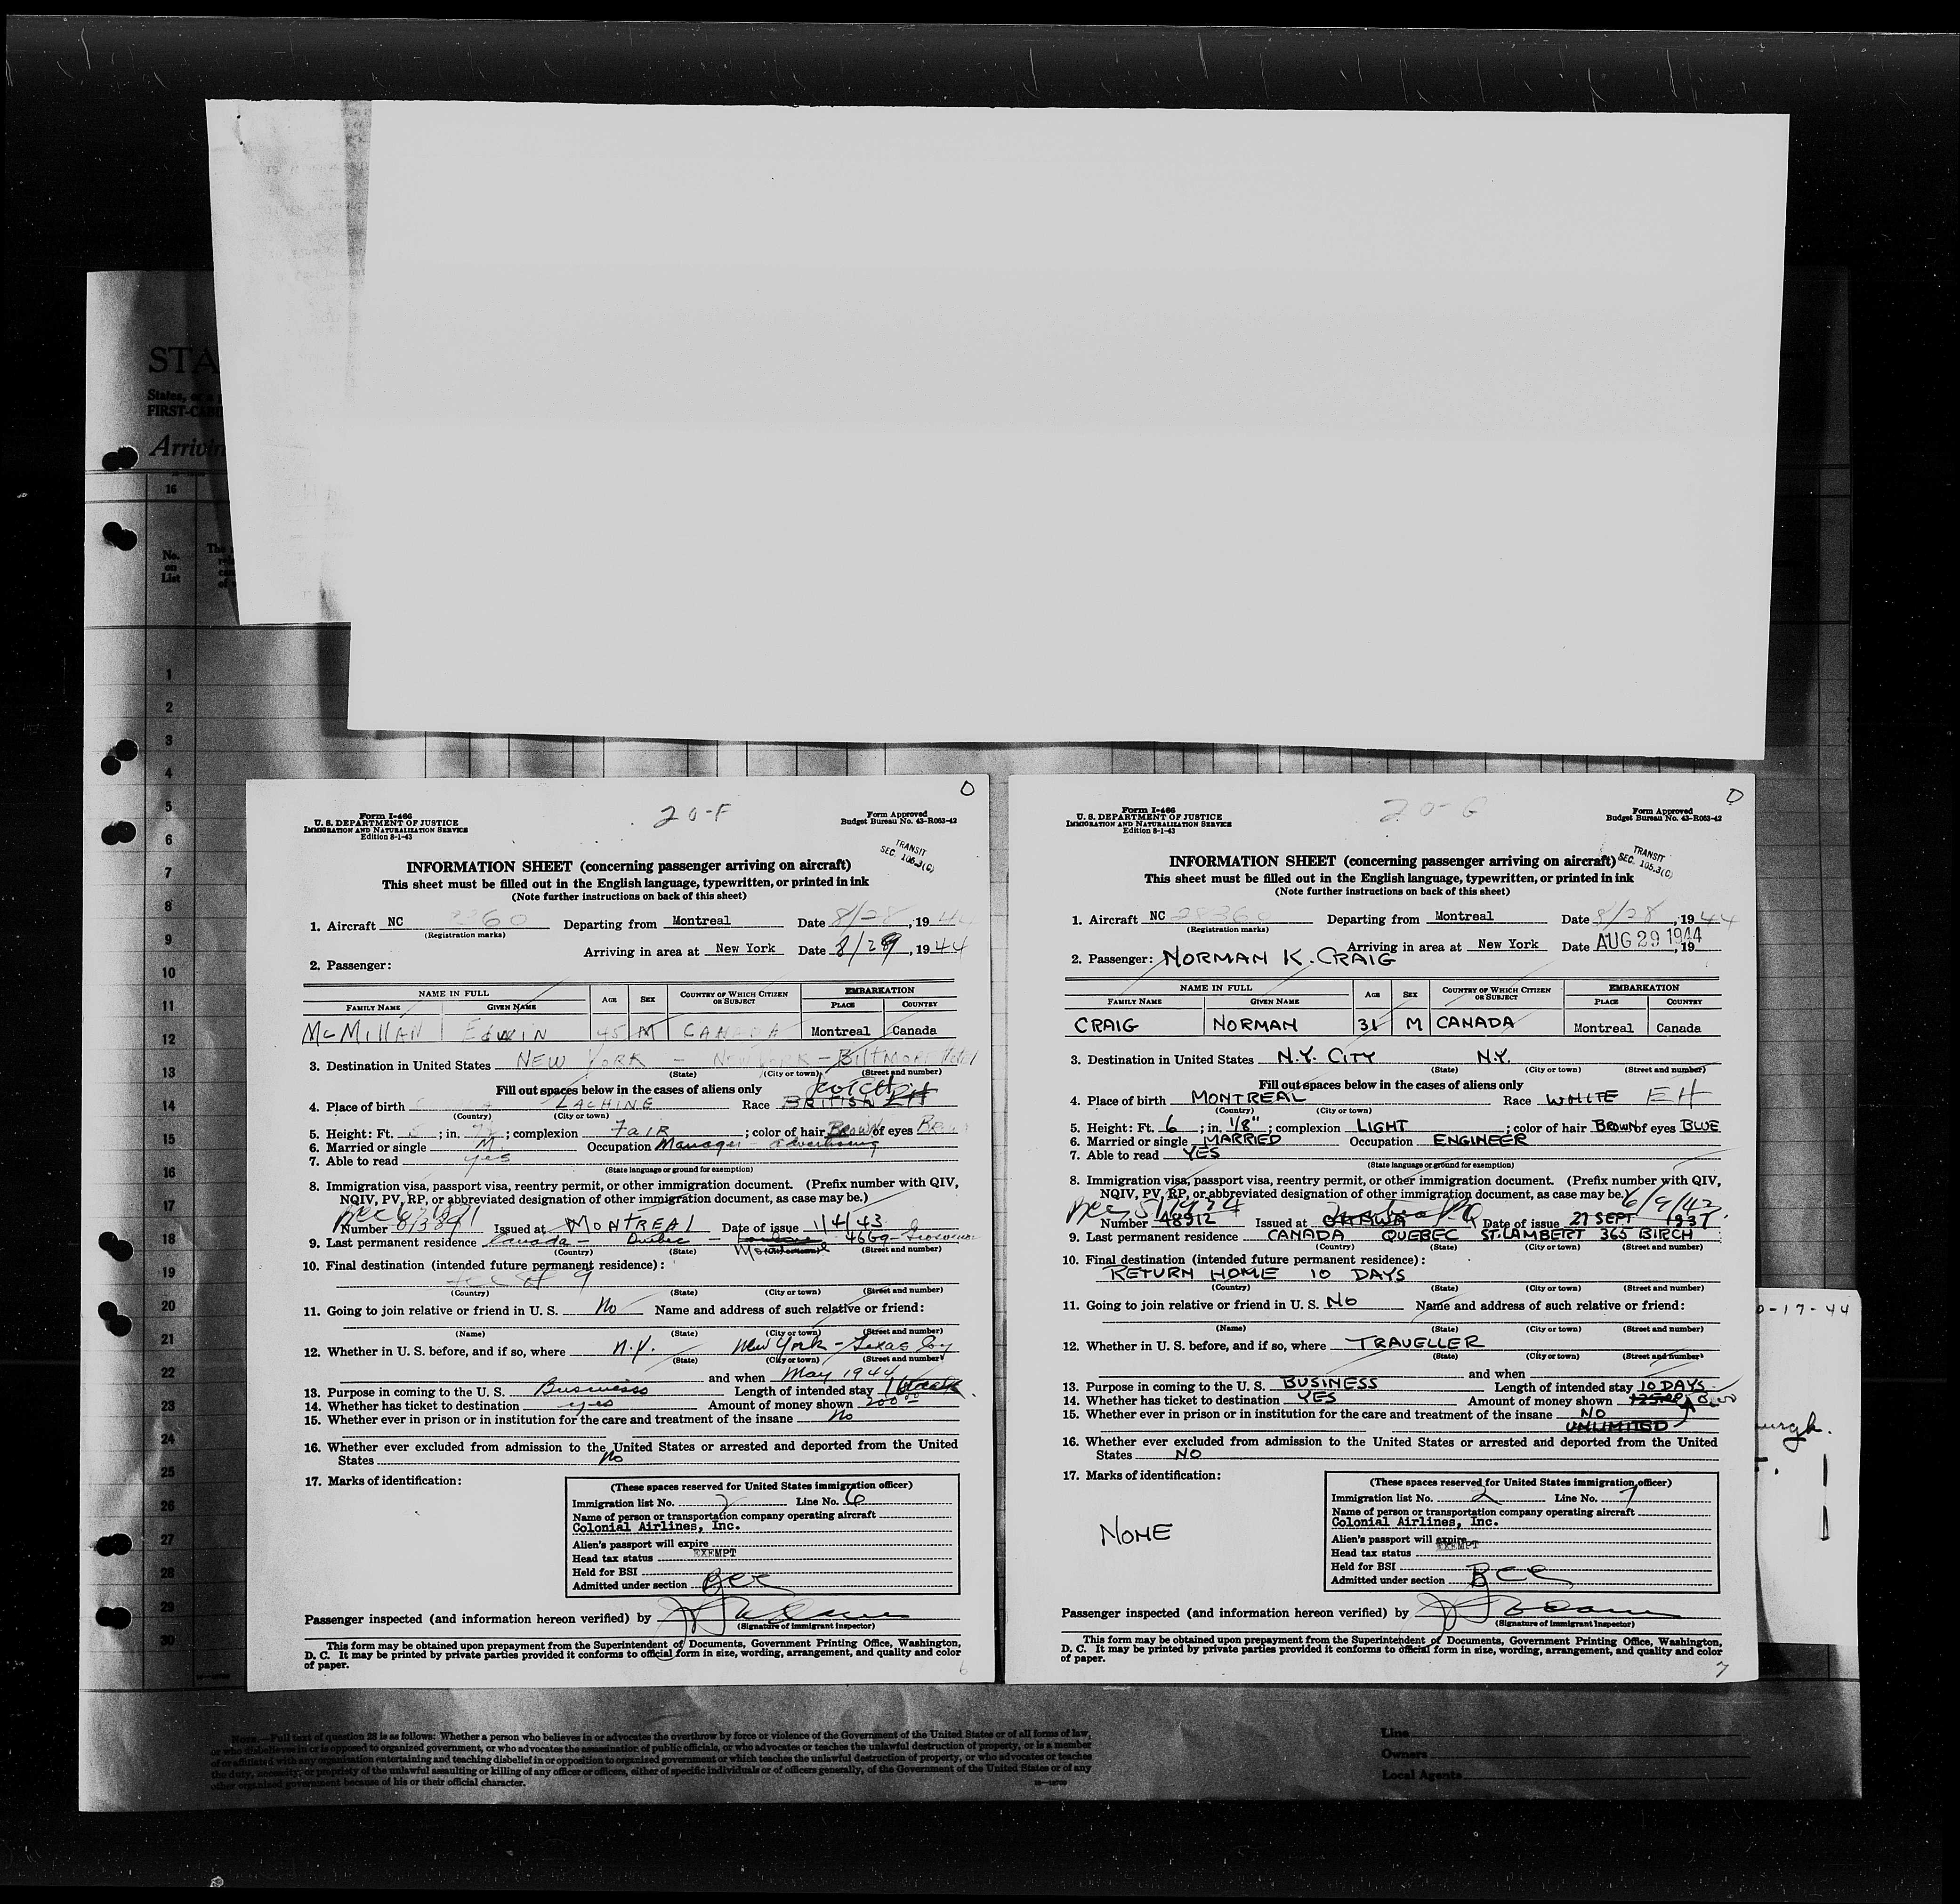 STA
States, or a
FIRST-CABI
Arrivin
16
No.
on
List
The
1
2
3
4
5
6
7
8
9
10
11
12
13
14
15
16
17
18
19
20
21
22
23
24
25
26
27
28
29
30
20-F
Form I-466
U. S. DEPARTMENT OF JUSTICE
IMMIGRATION AND NATURALIZATION SERVICE
Edition 8-1-43
Form Approved
Budget Bureau No. 43-R063-42
TRANSIT
SEC. 105.3(C)
INFORMATION SHEET (concerning passenger arriving on aircraft)
This sheet must be filled out in the English language, typewritten, or printed in ink
(Note further instructions on back of this sheet)
1. Aircraft NC Departing from Montreal Date 8/28, 1944
(Registration marks)
Arriving in area at New York Date 8/29, 1944
2. Passenger:
NAME IN FULL AGE SEX COUNTRY OF WHICH CITIZEN OR SUBJECT EMBARKATION
FAMILY NAME GIVEN NAME PLACE COUNTRY
McMILLAN EDWIN 45 M CANADA Montreal Canada
3. Destination in United States NEW YORK - NEW YORK - BILTMORE Hotel
(State) (City or town) (Street and number)
Fill out spaces below in the cases of aliens only
4. Place of birth LACHINE Race BRITISH
(Country) (City or town)
5. Height: Ft. 5; in. ; complexion FAIR; color of hair BROWN of eyes
6. Married or single M. Occupation Manager - advertising
7. Able to read yes
(State language or ground for exemption)
8. Immigration visa, passport visa, reentry permit, or other immigration document. (Prefix number with QIV,
NQIV, PV, RP, or abbreviated designation of other immigration document, as case may be.)
Number Issued at MONTREAL Date of issue 1/4/43
9. Last permanent residence Canada - Quebec -
(Country) (State) (Street and number)
10. Final destination (intended future permanent residence):
(Country) (State) (City or town) (Street and number)
11. Going to join relative or friend in U. S. No Name and address of such relative or friend:
(Name) (State) (City or town) (Street and number)
12. Whether in U. S. before, and if so, where N.Y. New York - Texas Co
(State) (City or town) (Street and number)
and when May 1944
13. Purpose in coming to the U. S. Business Length of intended stay 1 week
14. Whether has ticket to destination yes Amount of money shown 200.00
15. Whether ever in prison or in institution for the care and treatment of the insane No
16. Whether ever excluded from admission to the United States or arrested and deported from the United
States No
17. Marks of identification:
(These spaces reserved for United States immigration officer)
Immigration list No. 2 Line No. 6
Name of person or transportation company operating aircraft
Colonial Airlines, Inc.
Alien's passport will expire
Head tax status EXEMPT
Held for BSI
Admitted under section BCC
Passenger inspected (and information hereon verified) by
(Signature of immigrant inspector)
This form may be obtained upon prepayment from the Superintendent of Documents, Government Printing Office, Washington,
D. C. It may be printed by private parties provided it conforms to official form in size, wording, arrangement, and quality and color
of paper.
6
20-G
Form I-466
U. S. DEPARTMENT OF JUSTICE
IMMIGRATION AND NATURALIZATION SERVICE
Edition 8-1-43
Form Approved
Budget Bureau No. 43-R063-42
TRANSIT
SEC. 105.3(C)
INFORMATION SHEET (concerning passenger arriving on aircraft)
This sheet must be filled out in the English language, typewritten, or printed in ink
(Note further instructions on back of this sheet)
1. Aircraft NC 28360 Departing from Montreal Date 8/28, 1944
(Registration marks)
Arriving in area at New York Date AUG 29 1944, 19
2. Passenger: NORMAN K. CRAIG
NAME IN FULL AGE SEX COUNTRY OF WHICH CITIZEN OR SUBJECT EMBARKATION
FAMILY NAME GIVEN NAME PLACE COUNTRY
CRAIG NORMAN 31 M CANADA Montreal Canada
3. Destination in United States N.Y. CITY N.Y.
(State) (City or town) (Street and number)
Fill out spaces below in the cases of aliens only
4. Place of birth MONTREAL Race WHITE EH
(Country) (City or town)
5. Height: Ft. 6; in. 1/8"; complexion LIGHT; color of hair BROWN of eyes BLUE
6. Married or single MARRIED Occupation ENGINEER
7. Able to read YES
(State language or ground for exemption)
8. Immigration visa, passport visa, reentry permit, or other immigration document. (Prefix number with QIV,
NQIV, PV, RP, or abbreviated designation of other immigration document, as case may be.) 6/9/42
Number 48912 Issued at OTTAWA Date of issue 27 SEPT 1937
9. Last permanent residence CANADA QUEBEC ST. LAMBERT 365 BIRCH
(Country) (State) (City or town) (Street and number)
10. Final destination (intended future permanent residence):
RETURN HOME 10 DAYS
(Country) (State) (City or town) (Street and number)
11. Going to join relative or friend in U. S. NO Name and address of such relative or friend:
(Name) (State) (City or town) (Street and number)
12. Whether in U. S. before, and if so, where TRAVELLER
(State) (City or town) (Street and number)
and when
13. Purpose in coming to the U. S. BUSINESS Length of intended stay 10 DAYS
14. Whether has ticket to destination YES Amount of money shown
15. Whether ever in prison or in institution for the care and treatment of the insane NO
UNLIMITED
16. Whether ever excluded from admission to the United States or arrested and deported from the United
States NO
17. Marks of identification:
NONE
(These spaces reserved for United States immigration officer)
Immigration list No. 2 Line No. 7
Name of person or transportation company operating aircraft
Colonial Airlines, Inc.
Alien's passport will expire
Head tax status EXEMPT
Held for BSI
Admitted under section BCC
Passenger inspected (and information hereon verified) by
(Signature of immigrant inspector)
This form may be obtained upon prepayment from the Superintendent of Documents, Government Printing Office, Washington,
D. C. It may be printed by private parties provided it conforms to official form in size, wording, arrangement, and quality and color
of paper.
7
0-17-44
urgh.
NOTE.—Full text of question 28 is as follows: Whether a person who believes in or advocates the overthrow by force or violence of the Government of the United States or of all forms of law,
or who disbelieves in or is opposed to organized government, or who advocates the assassination of public officials, or who advocates or teaches the unlawful destruction of property, or is a member
of or affiliated with any organization entertaining and teaching disbelief in or opposition to organized government or which teaches the unlawful destruction of property, or who advocates or teaches
the duty, necessity, or propriety of the unlawful assaulting or killing of any officer or officers, either of specific individuals or of officers generally, of the Government of the United States or of any
other organized government because of his or their official character.
Line
Owners
Local Agents